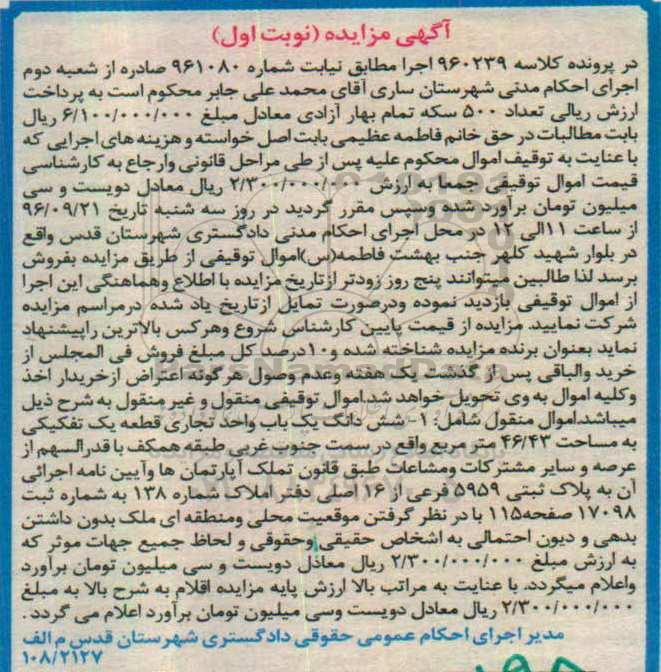 آگهی مزایده (نوبت اول)
در پرونده کلاسه ۹۶۰۲۳۹ اجرا مطابق نیابت شماره ۹۶۱۰۸۰ صادره از شعبه دوم
اجرای احکام مدنی شهرستان ساری آقای محمد علی جابر محکوم است به پرداخت
ارزش ریالی تعداد ۵۰۰ سکه تمام بهار آزادی معادل مبلغ ۶/۱۰۰/۰۰۰/۰۰۰ ریال
بابت مطالبات در حق خانم فاطمه عظیمی بابت اصل خواسته و هزینه های اجرایی که
با عنایت به توقیف اموال محکوم علیه پس از طی مراحل قانونی وارجاع به کارشناسی
قیمت اموال توقیفی جمعا به ارزش ۲/۳۰۰/۰۰۰/۰۰۰ ریال معادل دویست و سی
میلیون تومان برآورد شده وسپس مقرر گردید در روز سه شنبه تاریخ ۹۶/۰۹/۲۱
از ساعت ۱۱الی ۱۲ در محل اجرای احکام مدنی دادگستری شهرستان قدس واقع
در بلوار شهید کلهر جنب بهشت فاطمه(س)اموال توقیفی از طریق مزایده بفروش
برسد لذا طالبین میتوانند پنج روز زودتر ازتاریخ مزایده با اطلاع وهماهنگی این اجرا
از اموال توقیفی بازدید نموده ودرصورت تمایل ازتاریخ یاد شده درمراسم مزایده
شرکت نمایید. مزایده از قیمت پایین کارشناس شروع وهرکس بالاترین راپیشنهاد
نماید بعنوان برنده مزایده شناخته شده و۱۰درصد کل مبلغ فروش فی المجلس از
خرید والباقی پس از گذشت یک هفته وعدم وصول هرگونه اعتراض ازخریدار اخذ
وکلیه اموال به وی تحویل خواهد شد.اموال توقیفی منقول و غیر منقول به شرح ذیل
میباشد.اموال منقول شامل: ۱- شش دانگ یک باب واحد تجاری قطعه یک تفکیکی
به مساحت ۴۶/۴۳ متر مربع واقع در سمت جنوب غربی طبقه همکف با قدرالسهم از
عرصه و سایر مشترکات ومشاعات طبق قانون تملک آپارتمان ها وآیین نامه اجرائی
آن به پلاک ثبتی ۵۹۵۹ فرعی از ۱۶ اصلی دفتر املاک شماره ۱۳۸ به شماره ثبت
۱۷۰۹۸ صفحه۱۱۵ با در نظر گرفتن موقعیت محلی ومنطقه ای ملک بدون داشتن
بدهی و دیون احتمالی به اشخاص حقیقی وحقوقی و لحاظ جمیع جهات موثر که
به ارزش مبلغ ۲/۳۰۰/۰۰۰/۰۰۰ ریال معادل دویست و سی میلیون تومان برآورد
واعلام میگردد. با عنایت به مراتب بالا ارزش پایه مزایده اقلام به شرح بالا به مبلغ
۲/۳۰۰/۰۰۰/۰۰۰ ریال معادل دویست وسی میلیون تومان برآورد اعلام می گردد.
مدیر اجرای احکام عمومی حقوقی دادگستری شهرستان قدس م الف
۱۰۸/۲۱۲۷